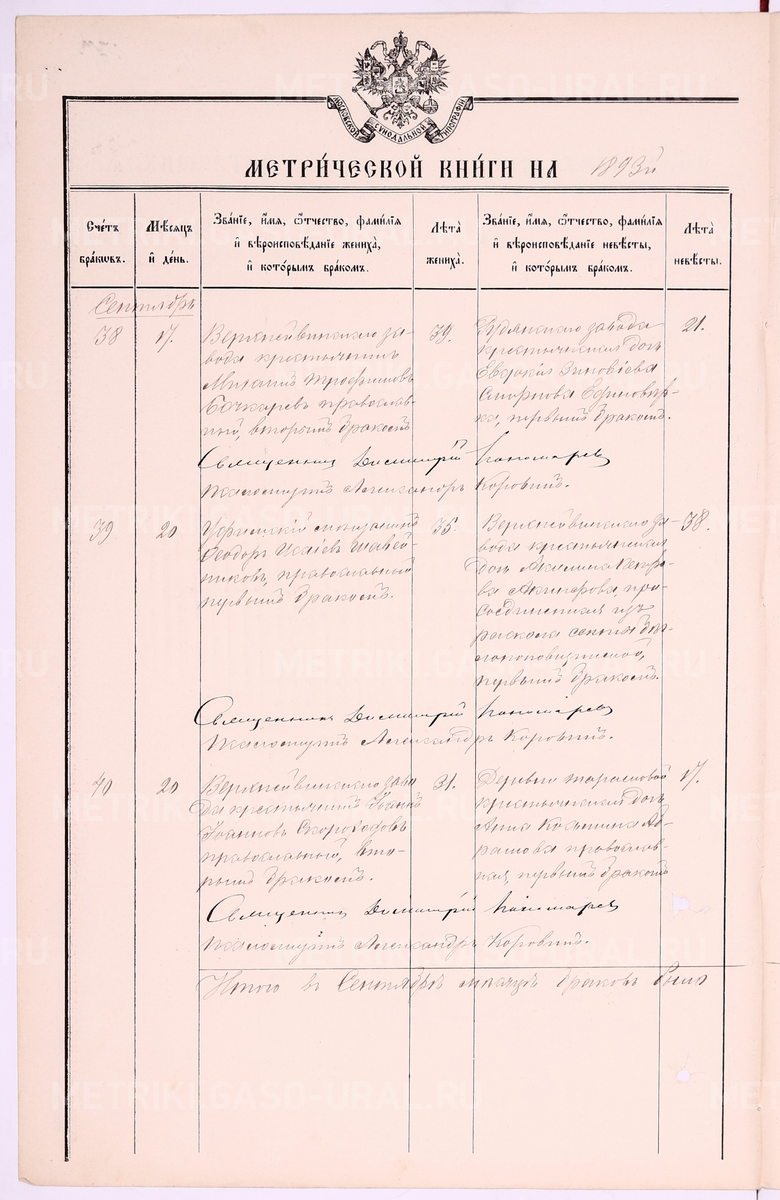 МОСКОВСКОЙ СУНОДАЛЬНОЙ ТИПОГРАФІИ
МЕТРИ́ЧЕСКОЙ КНИ́ГИ НА 1893й
Сче́тъ бра́кѡвъ.
Мѣ́сѧцъ и҆ де́нь.
Зва́нїе, и҆́мѧ, ѻ҆́тчество, фами́лїѧ и҆ вѣроисповѣ́данїе жениха̀, и҆ кото́рымъ бра́комъ.
Лѣ́та жениха̀.
Зва́нїе, и҆́мѧ, ѻ҆́тчество, фами́лїѧ и҆ вѣроисповѣ́данїе невѣ́сты, и҆ кото́рымъ бра́комъ.
Лѣ́та невѣ́сты.
Сентябрь
38
17.
Верхнейвинскаго за-
вода крестьянинъ
Михаилъ Трофимовъ
Бочкаревъ православ-
ный, вторымъ бракомъ
39.
Рудянскаго завода
крестьянская дочь
Евдокія Зиновіева
Смирнова
первымъ бракомъ.
21.
Священникъ Димитрій Пономаревъ
Псаломщикъ Александръ Коровинъ.
39
20
Уфимскій мещанинъ
Ѳеодоръ Исаіевъ
православный
первымъ бракомъ.
35.
Верхнейвинскаго за-
вода крестьянская
дочь Акилина Петро-
ва при-
соединенная изъ
раскола секты бѣг-
лопоповщинской,
первымъ бракомъ.
38.
Священникъ Димитрій Пономаревъ
Псаломщикъ Александръ Коровинъ.
40
20
Верхнейвинскаго заво
да крестьянинъ Іоаннъ
Іоанновъ Скороходовъ
православный, вто-
рымъ бракомъ.
31.
Деревни Тарасковой
крестьянская дочь
Анна Козьмина Аб-
рамова православ-
ная, первымъ бракомъ
17.
Священникъ Димитрій Пономаревъ
Псаломщикъ Александръ Коровинъ.
Итого въ Сентябрѣ мѣсяцѣ браковъ было
METRIKI.GASO-URAL.RU